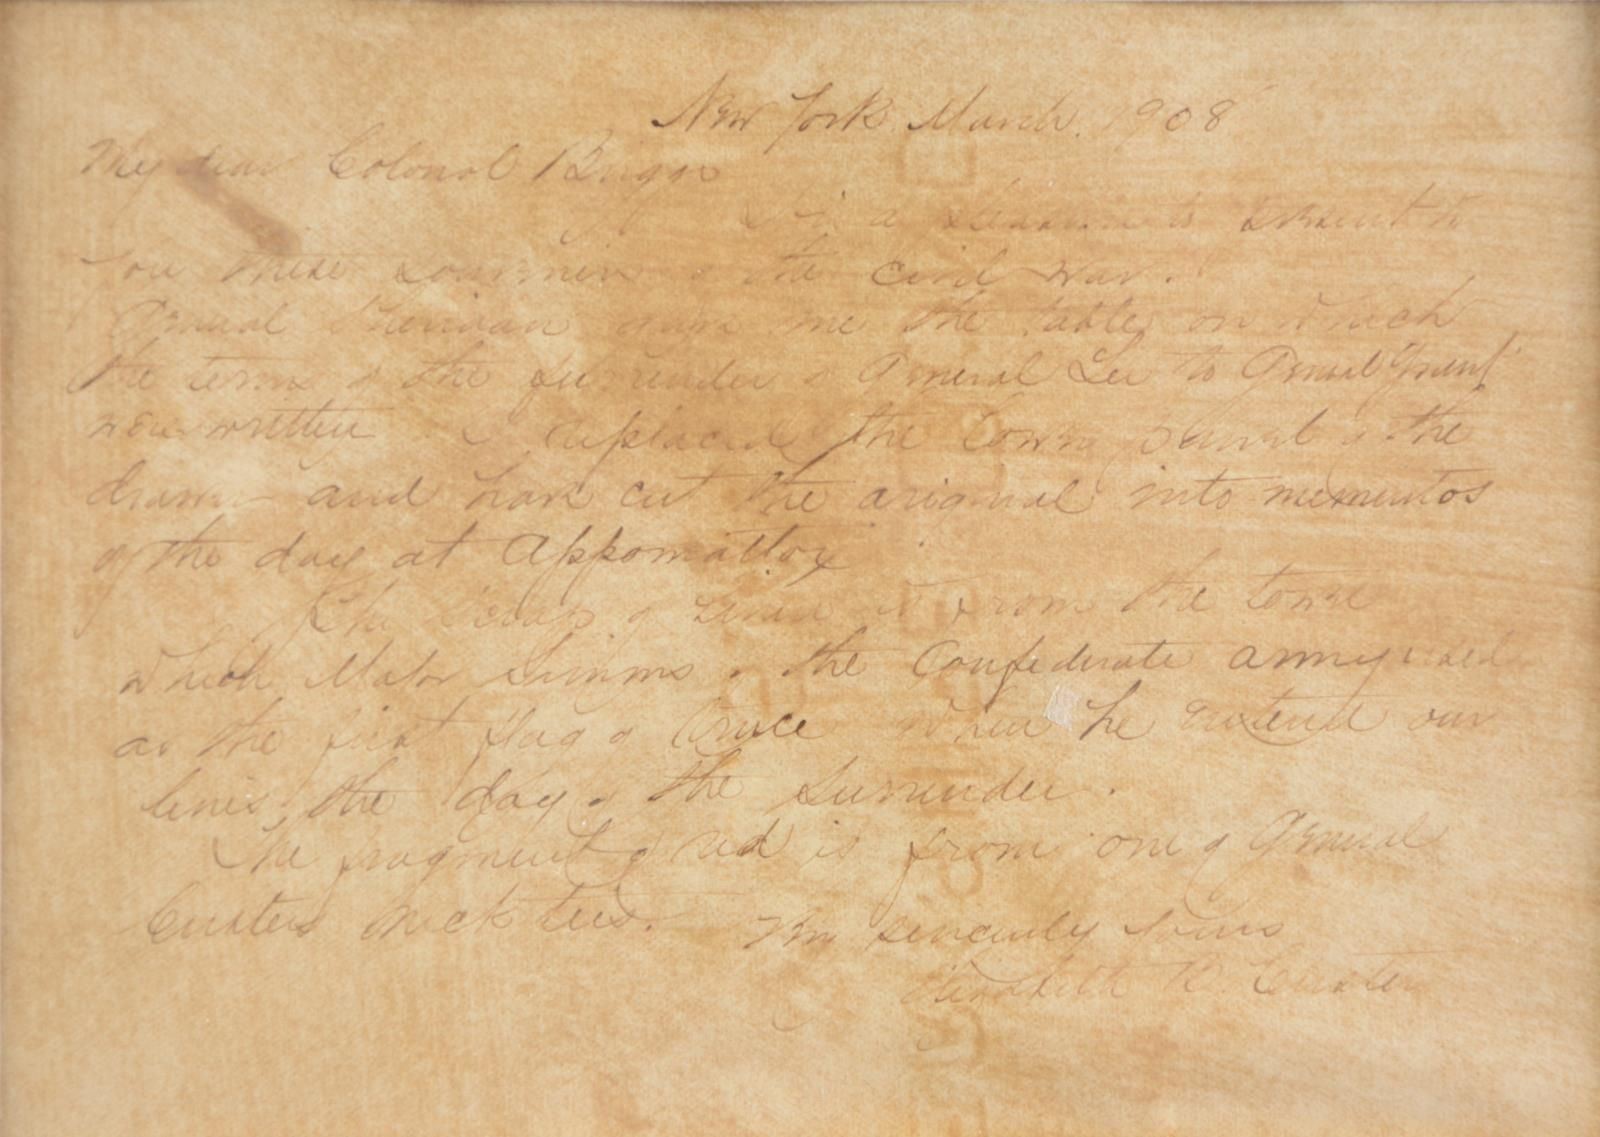 New York March. 1908
My dear Colonel Briggs
It is a pleasure to present to
you these souvenirs of the civil war.
General Sheridan gave me the table on which
the terms of the surrender of General Lee to General Grant
were written I replaced the lower panel of the
drawer and have cut the original into mementos
of the day at Appomattox
The scrap of linen is from the towel
which Major Simms of the Confederate army used
as the first flag of truce when he entered our
lines the day of the surrender.
The fragment of red is from one of General
Custers neck ties. Very sincerely yours
Elizabeth B. Custer